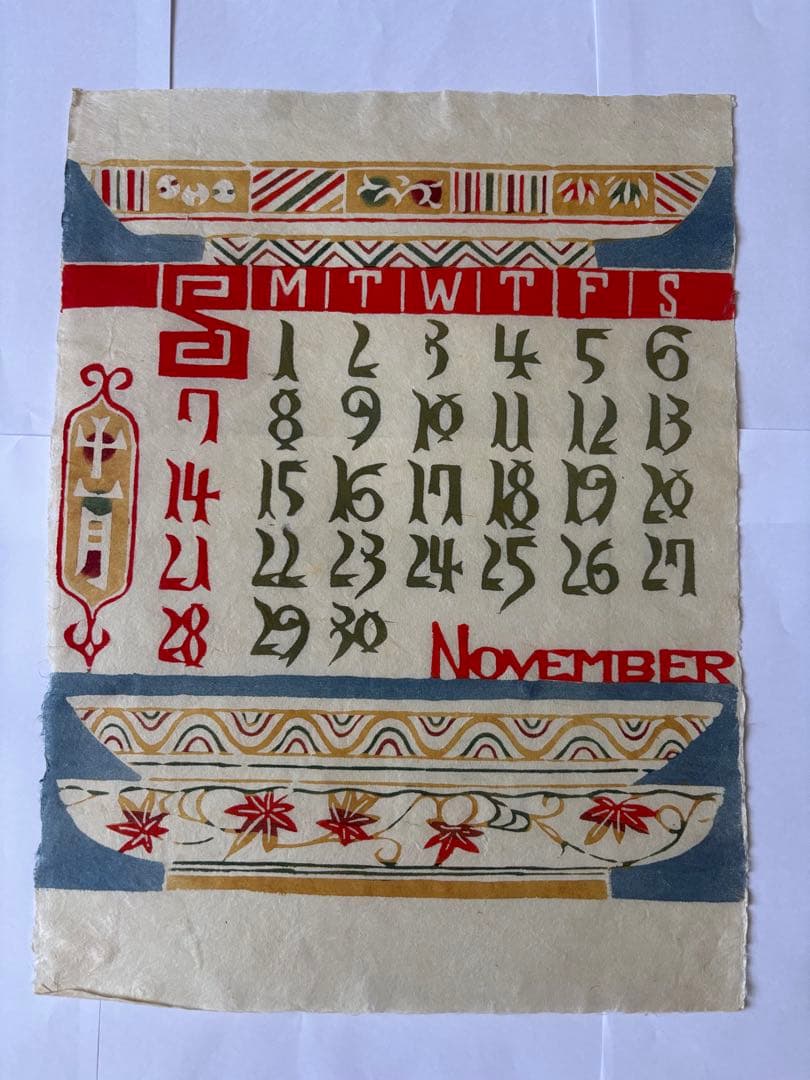 S M T W T F S
1 2 3 4 5 6
7 8 9 10 11 12 13
14 15 16 17 18 19 20
21 22 23 24 25 26 27
28 29 30
十一月
NOVEMBER